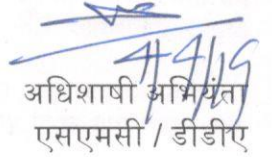 4/4/19
अधिशाषी अभियंता
एसएमसी / डीडीए